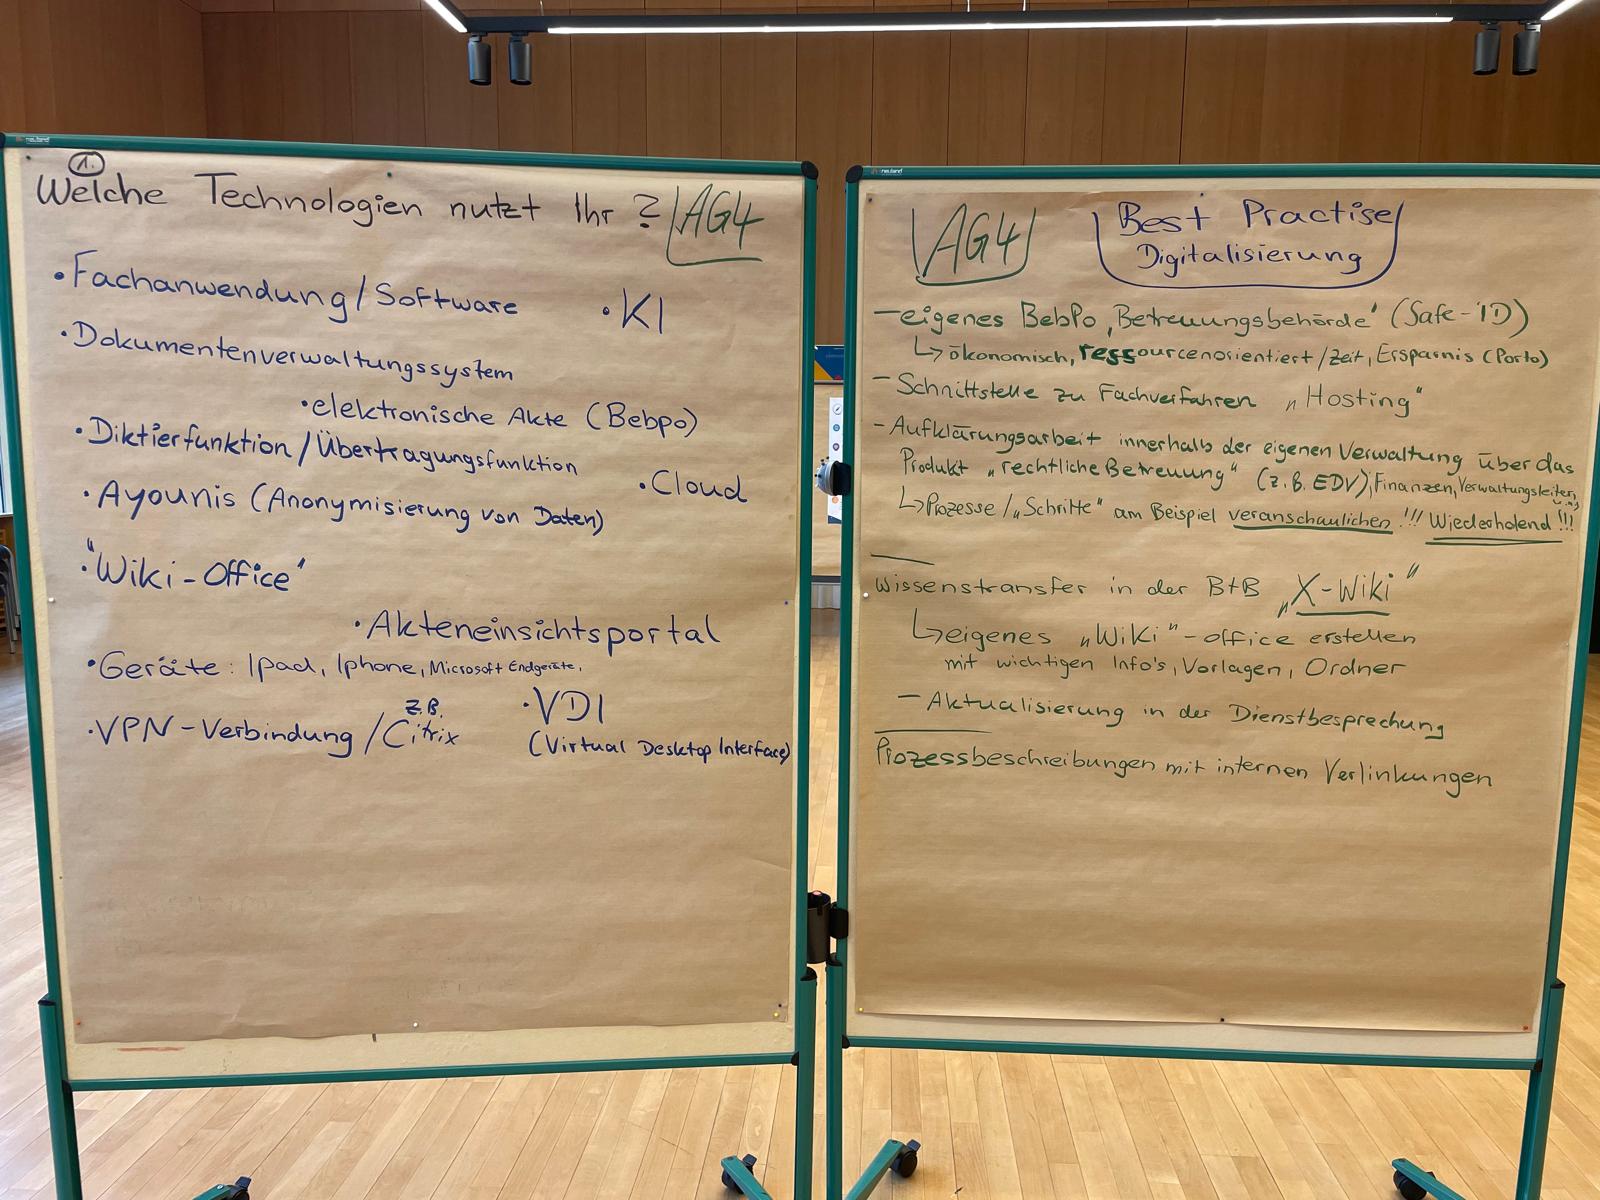 1.
Welche Technologien nutzt Ihr ? AG4
• Fachanwendung / Software
• KI
• Dokumentenverwaltungssystem
• elektronische Akte (Bebpo)
• Diktierfunktion / Übertragungsfunktion
• Cloud
• Ayounis (Anonymisierung von Daten)
• "Wiki-Office"
• Akteneinsichtsportal
• Geräte: Ipad, Iphone, Microsoft Endgeräte,
• VPN-Verbindung / z.B. Citrix
• VDI
(Virtual Desktop Interface)
neuland
AG4
Best Practise
Digitalisierung
- eigenes BebPo "Betreuungsbehörde" (Safe-ID)
↳ ökonomisch, ressourcenorientiert / Zeit, Ersparnis (Porto)
- Schnittstelle zu Fachverfahren „Hosting"
- Aufklärungsarbeit innerhalb der eigenen Verwaltung über das
Produkt „rechtliche Betreuung" (z.B. EDV), Finanzen, Verwaltungsleiter,
↳ Prozesse / „Schritte" am Beispiel veranschaulichen !!! Wiederholend !!!
Wissenstransfer in der BtB „X-Wiki"
↳ eigenes „Wiki"-office erstellen
mit wichtigen Info's, Vorlagen, Ordner
- Aktualisierung in der Dienstbesprechung
Prozessbeschreibungen mit internen Verlinkungen